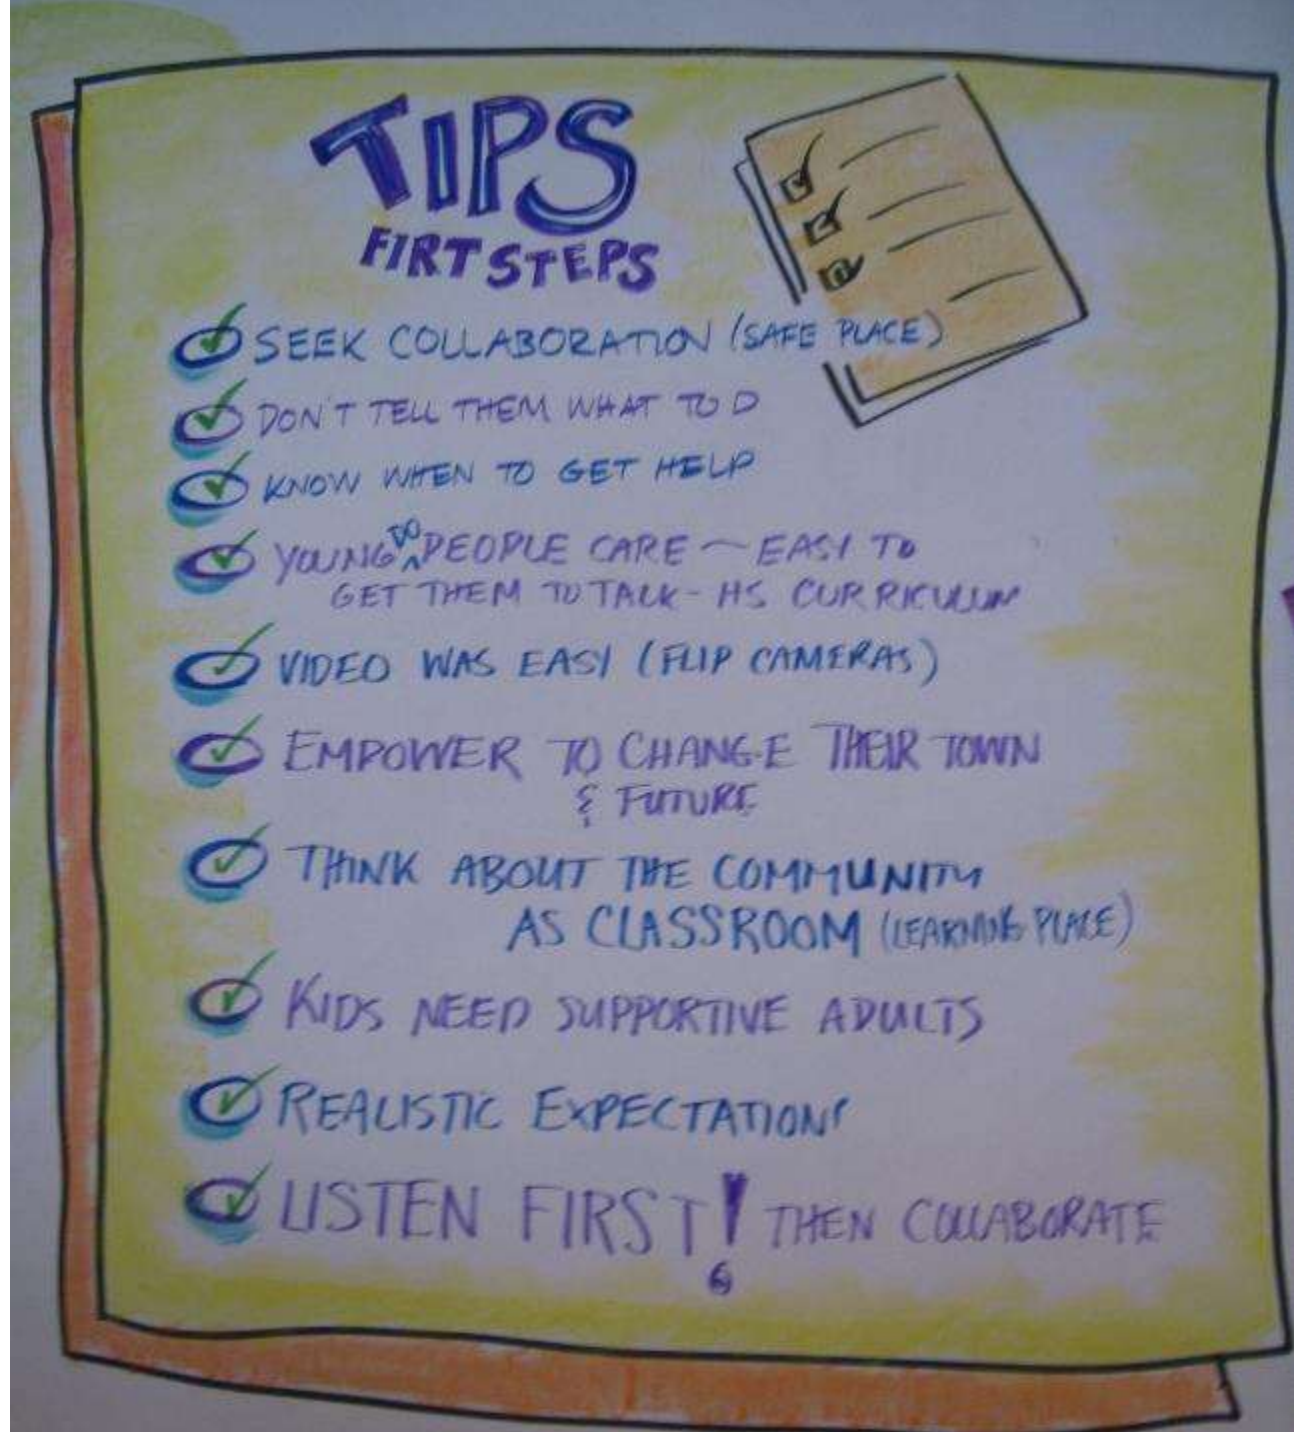 TIPS
FIRT STEPS
SEEK COLLABORATION (SAFE PLACE)
DON'T TELL THEM WHAT TO D
KNOW WHEN TO GET HELP
YOUNG DO PEOPLE CARE - EASY TO
GET THEM TO TALK - HS CURRICULUM
VIDEO WAS EASY (FLIP CAMERAS)
EMPOWER TO CHANGE THEIR TOWN
& FUTURE
THINK ABOUT THE COMMUNITY
AS CLASSROOM (LEARNING PLACE)
KIDS NEED SUPPORTIVE ADULTS
REALISTIC EXPECTATIONS
LISTEN FIRST! THEN COLLABORATE